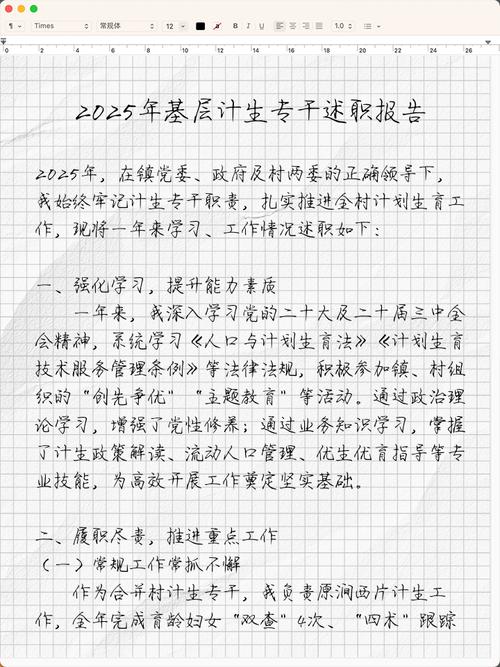 Times
常规体
12
B I U
1.0
0 2 4 6 8 10 12 14 16 18 20 22 24 26
2025年基层计生专干述职报告
2025年，在镇党委、政府及村两委的正确领导下，
我始终牢记计生专干职责，扎实推进全村计划生育工
作，现将一年来学习、工作情况述职如下：
一、强化学习，提升能力素质
一年来，我深入学习党的二十大及二十届三中全
会精神，系统学习《人口与计划生育法》《计划生育
技术服务管理条例》等法律法规，积极参加镇、村组
织的“创先争优”“主题教育”等活动。通过政治理
论学习，增强了党性修养；通过业务知识学习，掌握
了计生政策解读、流动人口管理、优生优育指导等专
业技能，为高效开展工作奠定坚实基础。
二、履职尽责，推进重点工作
（一）常规工作常抓不懈
作为合并村计生专干，我负责原涧西片计生工
作，全年完成育龄妇女“双查”4次、“四术”跟踪